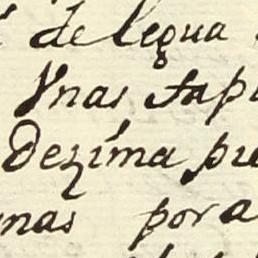 de legua
Ynas tap
Dezima pie
nas por a